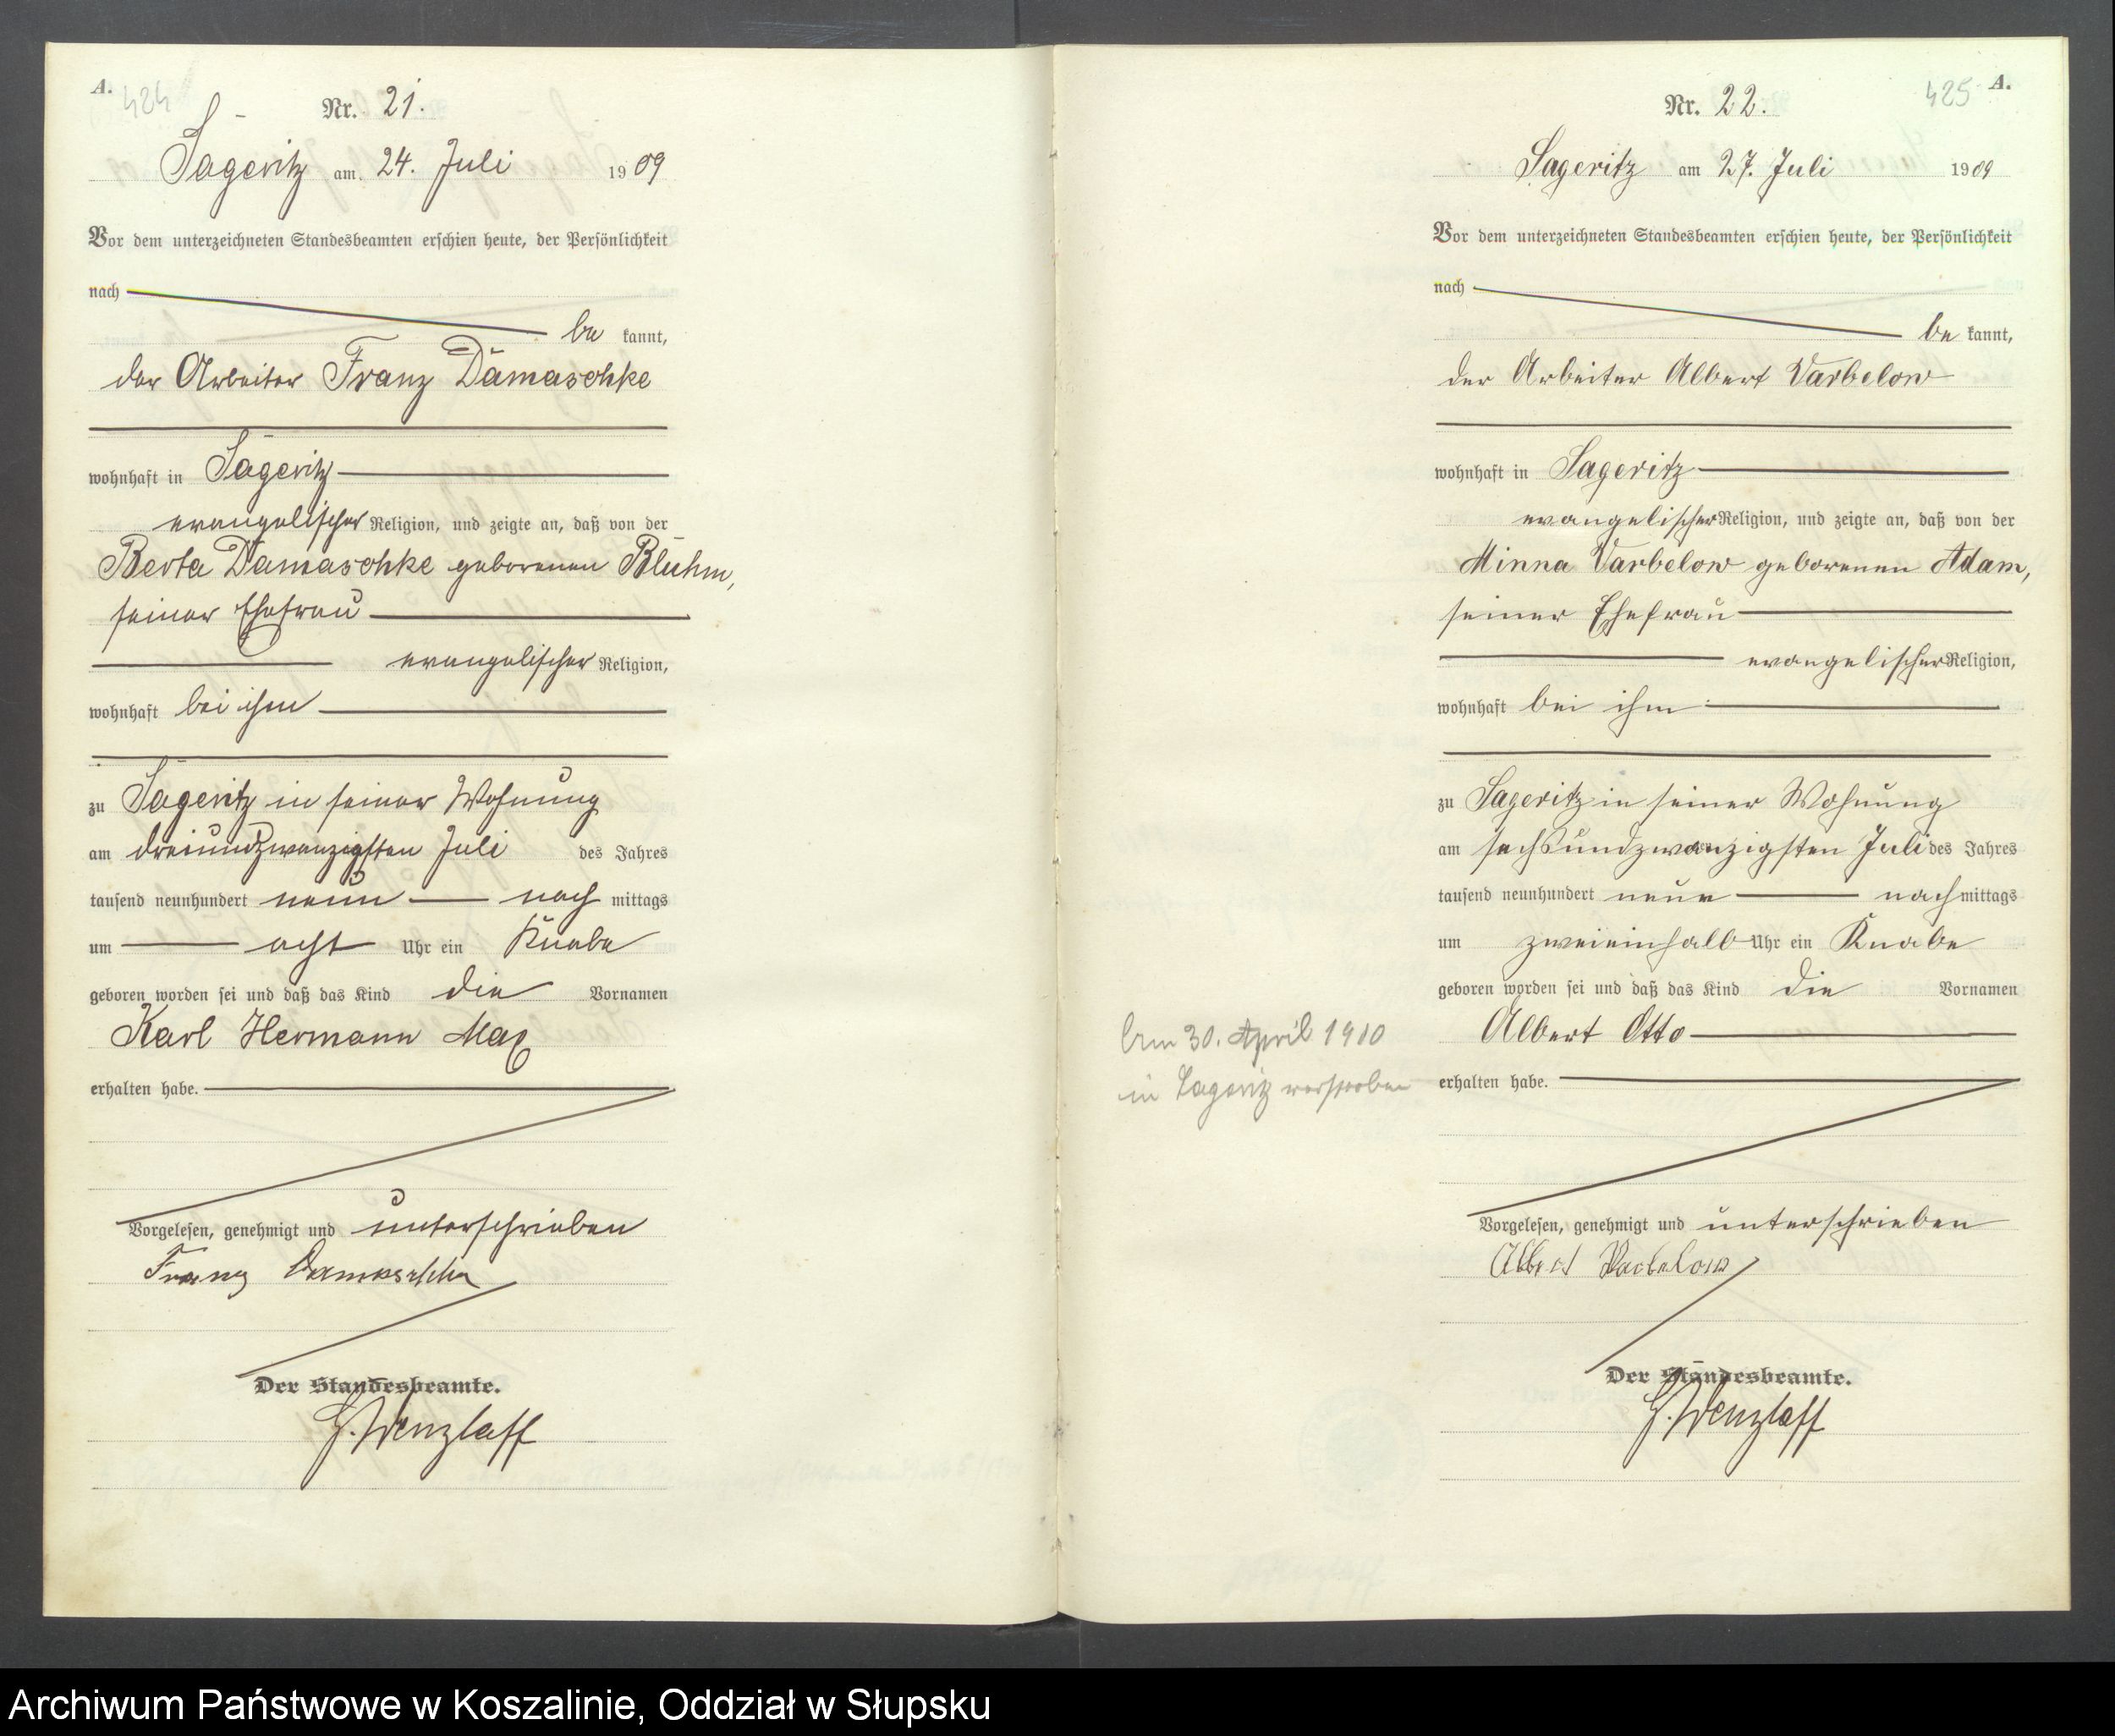 A.
424
Nr. 21.
Sageritz am 24. Juli 1909
Vor dem unterzeichneten Standesbeamten erschien heute, der Persönlichkeit
nach
be kannt,
der Arbeiter Franz Damaschke
wohnhaft in Sageritz
evangelischer Religion, und zeigte an, daß von der
Berta Damaschke geborenen Bluhm,
seiner Ehefrau
evangelischer Religion,
wohnhaft bei ihm
zu Sageritz in seiner Wohnung
am dreiundzwanzigsten Juli des Jahres
tausend neunhundert neun nach mittags
um acht Uhr ein Knabe
geboren worden sei und daß das Kind die Vornamen
Karl Hermann Max
erhalten habe.
Vorgelesen, genehmigt und unterschrieben
Franz Damaschke
Der Standesbeamte.
H. Wenzlaff
425 A.
Nr. 22.
Sageritz am 27. Juli 1909
Vor dem unterzeichneten Standesbeamten erschien heute, der Persönlichkeit
nach
be kannt,
der Arbeiter Albert Varbelow
wohnhaft in Sageritz
evangelischer Religion, und zeigte an, daß von der
Minna Varbelow geborenen Adam,
seiner Ehefrau
evangelischer Religion,
wohnhaft bei ihm
zu Sageritz in seiner Wohnung
am sechsundzwanzigsten Juli des Jahres
tausend neunhundert neun nach mittags
um zweieinhalb Uhr ein Knabe
geboren worden sei und daß das Kind die Vornamen
Albert Otto
erhalten habe.
Am 30. April 1910
in Sageritz verstorben
Vorgelesen, genehmigt und unterschrieben
Albert Varbelow
Der Standesbeamte.
H. Wenzlaff
Archiwum Państwowe w Koszalinie, Oddział w Słupsku